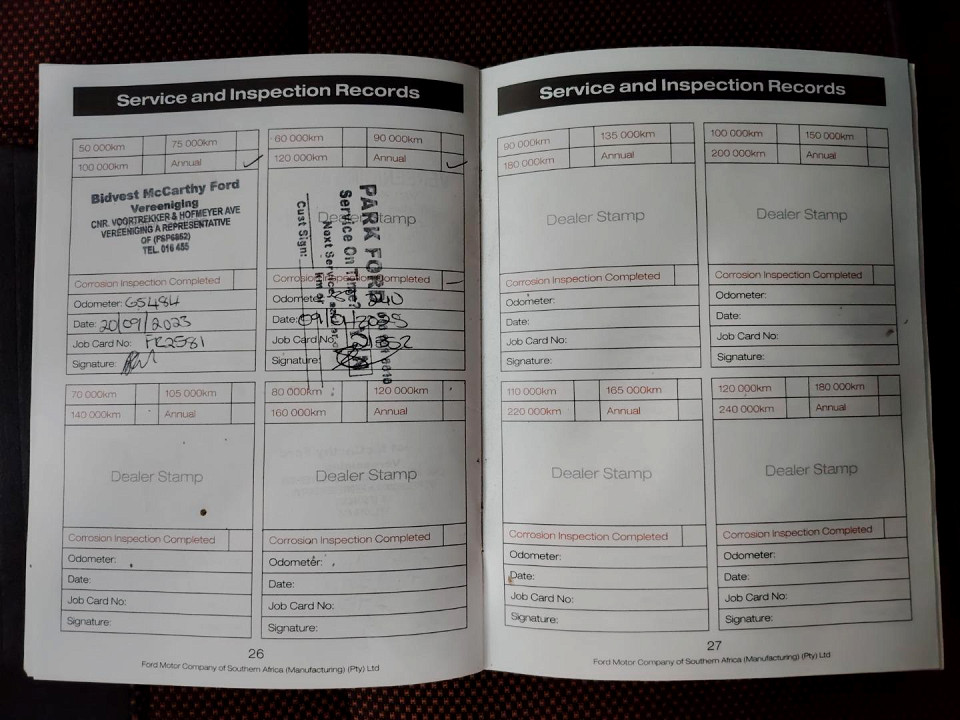 Service and Inspection Records
50 000km 75 000km
100 000km Annual ✓
Bidvest McCarthy Ford
Vereeniging
CNR. VOORTREKKER & HOFMEYER AVE
VEREENIGING A REPRESENTATIVE
OF (FSP6852)
TEL. 016 455
Corrosion Inspection Completed
Odometer: 65484
Date: 20/09/2023
Job Card No: FE2581
Signature:
60 000km 90 000km
120 000km Annual ✓
Dealer Stamp
PARK FORD
Service On Time?
Next Service:
Km or
Cust Sign:
Corrosion Inspection Completed
Odometer:
Date: 09/ /2025
Job Card No:
Signature:
70 000km 105 000km
140 000km Annual
Dealer Stamp
Corrosion Inspection Completed
Odometer:
Date:
Job Card No:
Signature:
80 000km 120 000km
160 000km Annual
Dealer Stamp
Corrosion Inspection Completed
Odometer:
Date:
Job Card No:
Signature:
26
Ford Motor Company of Southern Africa (Manufacturing) (Pty) Ltd
Service and Inspection Records
90 000km 135 000km
180 000km Annual
Dealer Stamp
Corrosion Inspection Completed
Odometer:
Date:
Job Card No:
Signature:
100 000km 150 000km
200 000km Annual
Dealer Stamp
Corrosion Inspection Completed
Odometer:
Date:
Job Card No:
Signature:
110 000km 165 000km
220 000km Annual
Dealer Stamp
Corrosion Inspection Completed
Odometer:
Date:
Job Card No:
Signature:
120 000km 180 000km
240 000km Annual
Dealer Stamp
Corrosion Inspection Completed
Odometer:
Date:
Job Card No:
Signature:
27
Ford Motor Company of Southern Africa (Manufacturing) (Pty) Ltd